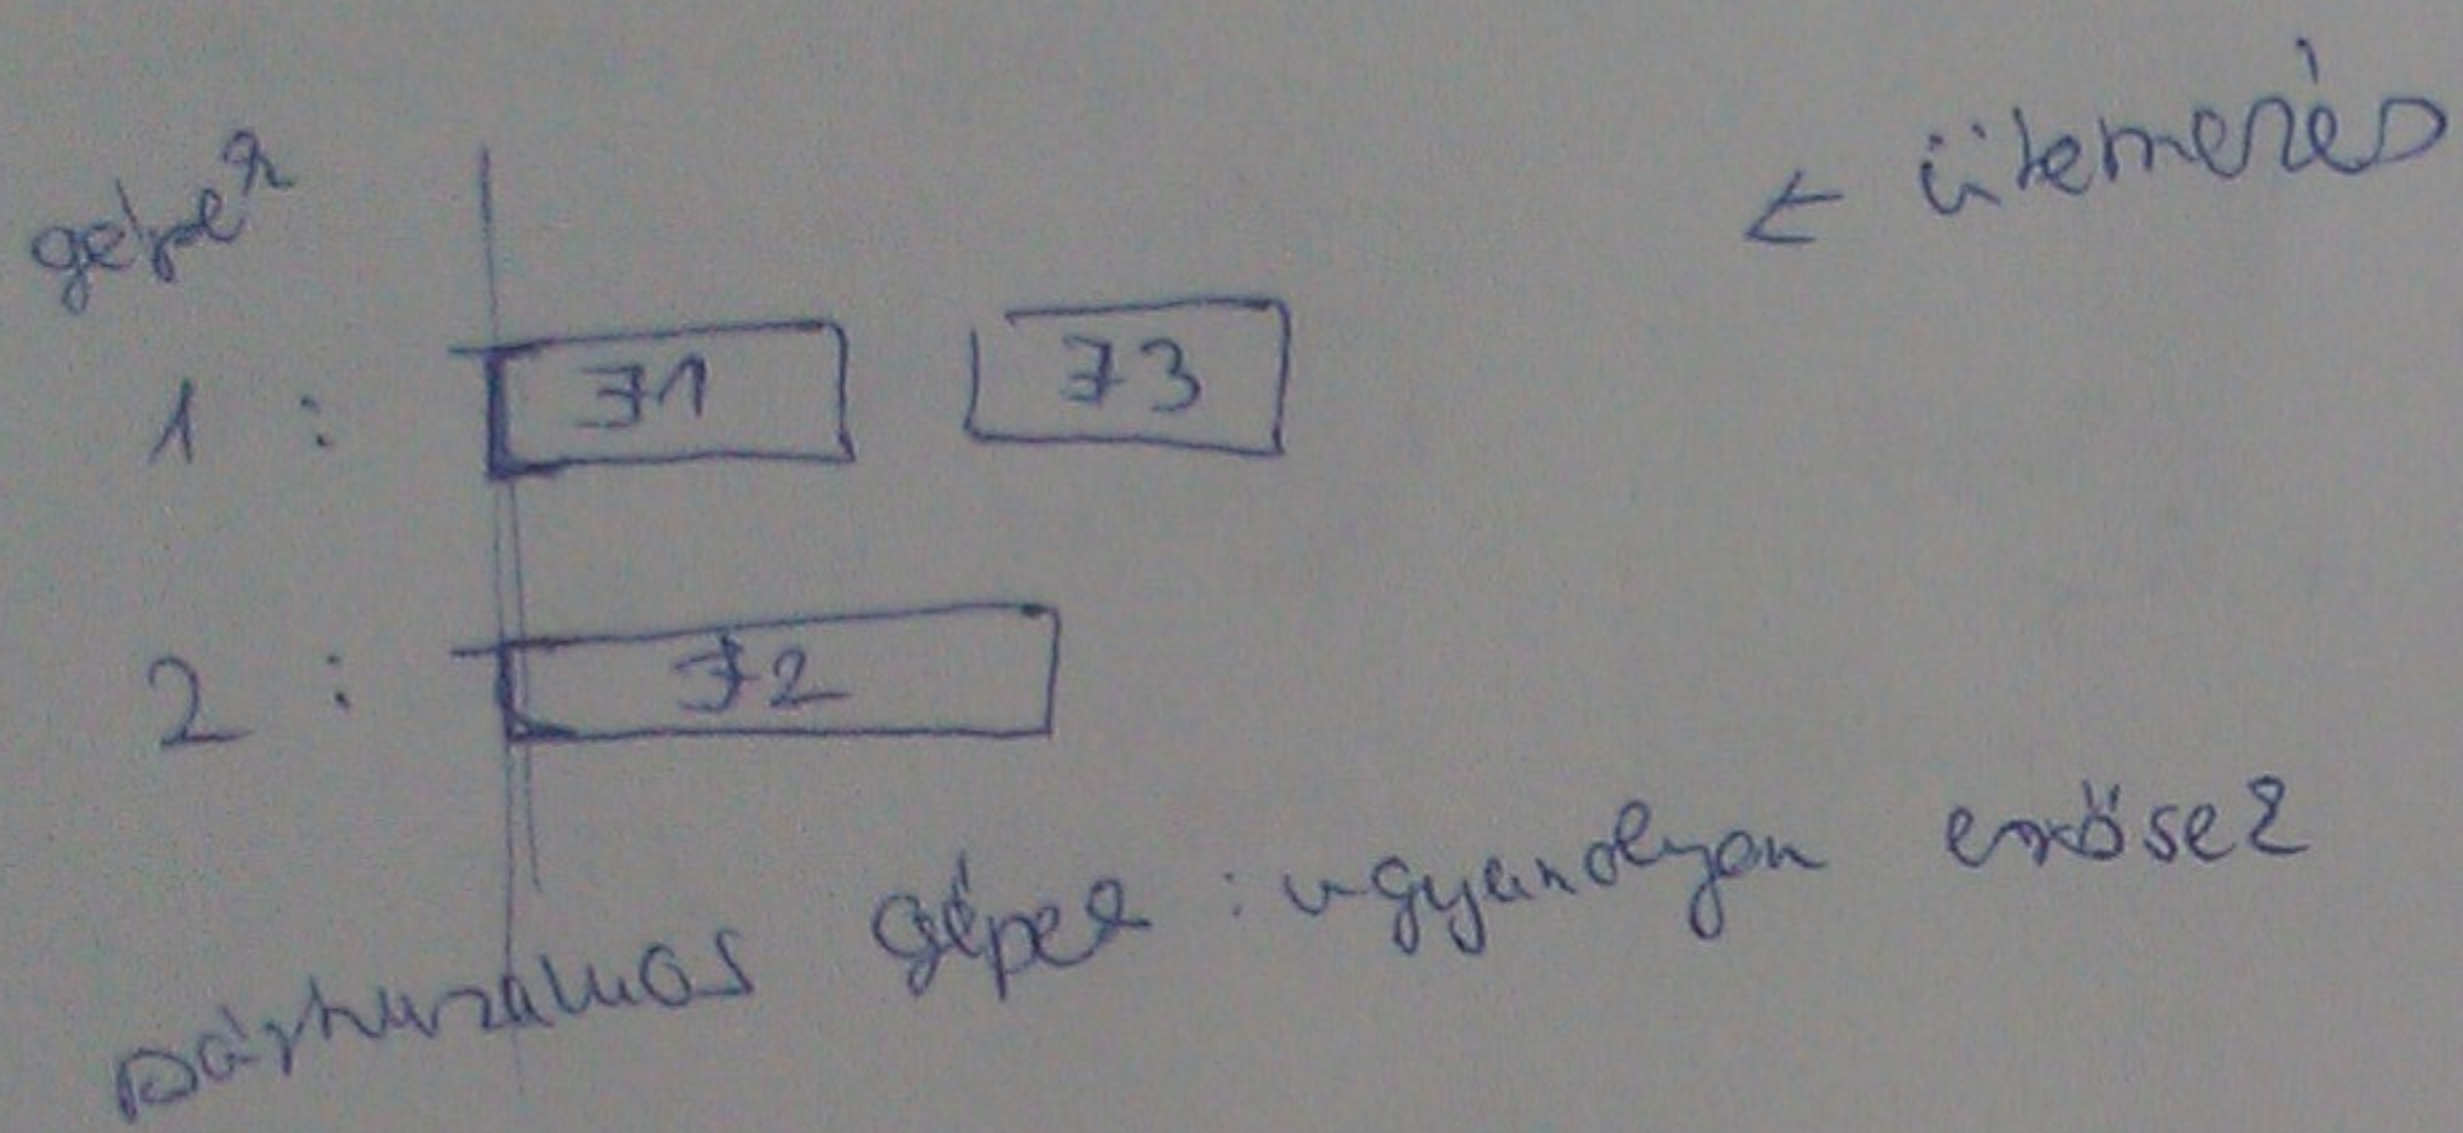 gépek
← ütemezés
1 : J1 J3
2 : J2
párhuzamos gépek : ugyanolyan erősek